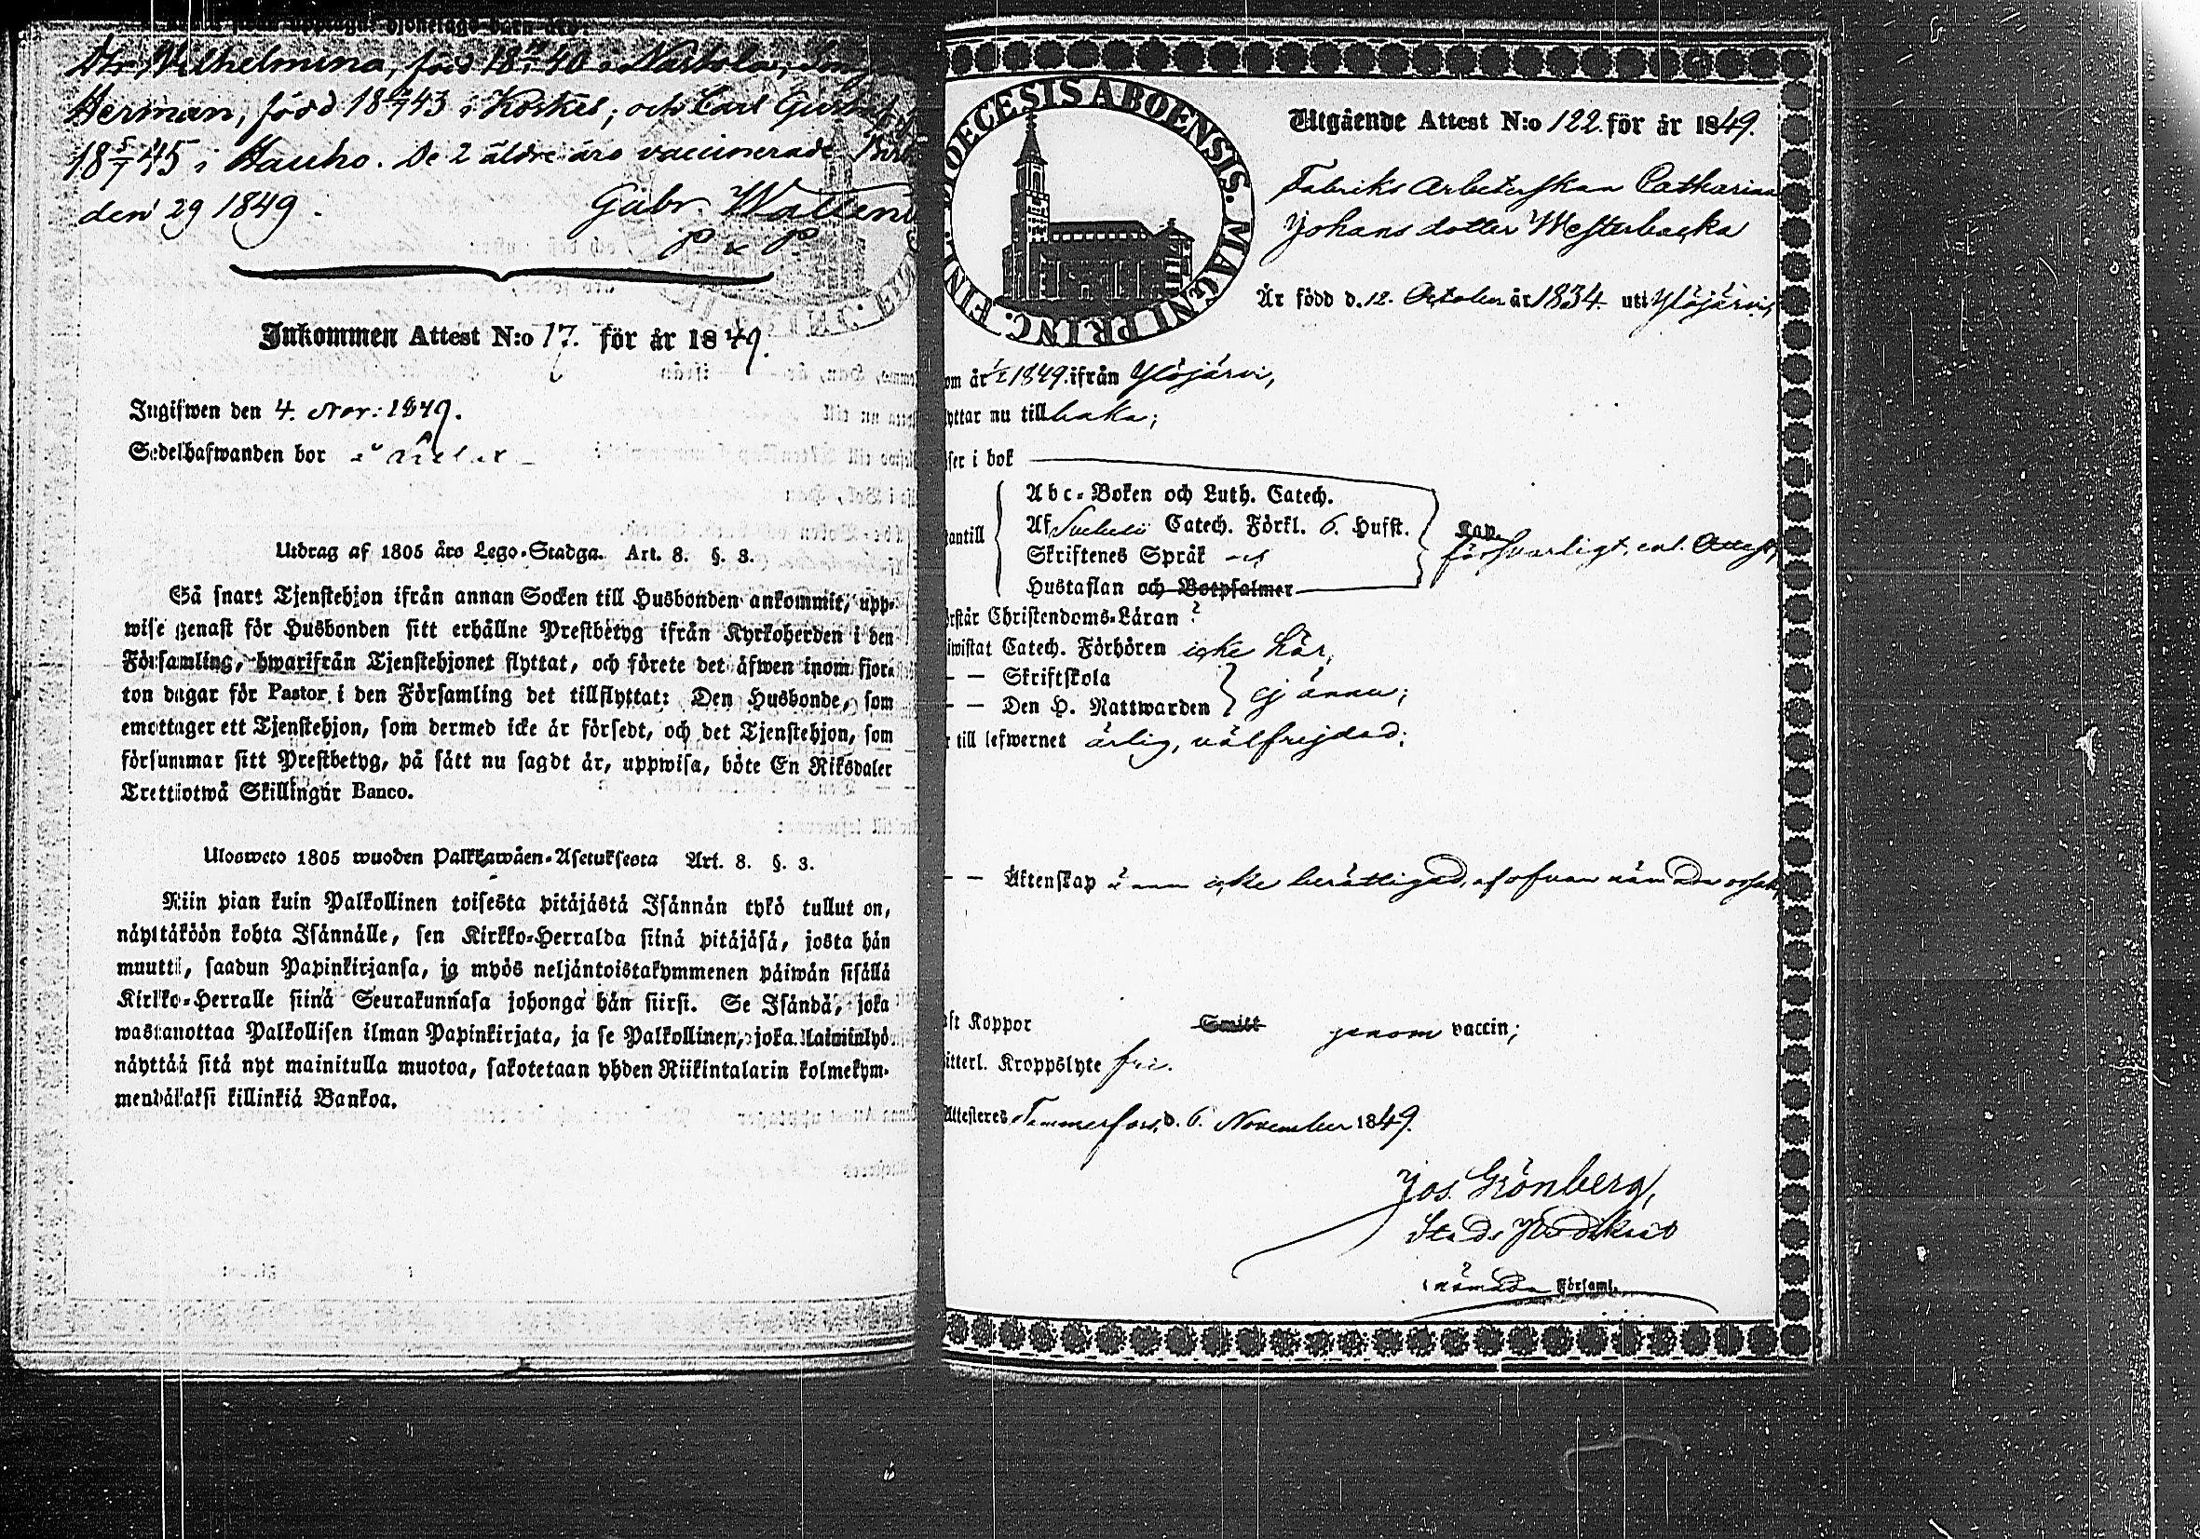 Wilhelmina, född 18 40 i Nastola;
Herman, född 18 43 i Koskis; och Carl Gustaf
18 5/7 45 i Hauho. De 2 äldre äro vaccinerade
den 29 1849. Gabr.
P x P
Inkommen Attest N:o 17. för år 1849.
Ingifwen den 4. Nov: 1849.
Sedelhafwanden bor
Utdrag af 1805 års Lego-Stadga. Art. 8. §. 3.
Så snart Tjenstehjon ifrån annan Socken till Husbonden ankommit, upp-
wise genast för Husbonden sitt erhållne Prestbetyg ifrån Kyrkoherden i den
Församling, hwarifrån Tjenstehjonet flyttat, och förete det äfwen inom fjor-
ton dagar för Pastor i den Församling det tillflyttat: Den Husbonde, som
emottager ett Tjenstehjon, som dermed icke är försedt, och det Tjenstehjon, som
försummar sitt Prestbetyg, på sätt nu sagdt är, uppwisa, böte En Riksdaler
Trettiotwå Skillingar Banco.
Ulosweto 1805 wuoden Palkkawäen-Asetuksesta Art. 8. §. 3.
Niin pian kuin Palkollinen toisesta pitäjästä Isännän tykö tullut on,
näyttäköön kohta Isännälle, sen Kirkko-Herralda siinä pitäjäsä, josta hän
muutti, saadun Papinkirjansa, ja myös neljäntoistakymmenen päiwän sisällä
Kirkko-Herralle siinä Seurakunnasa johonga hän siirsi. Se Isändä, joka
wastanottaa Palkollisen ilman Papinkirjata, ja se Palkollinen, joka laiminlyö
näyttää sitä nyt mainitulla muotoa, sakotetaan yhden Riikintalarin kolmekym-
mendäkaksi killinkiä Bankoa.
DIOECESIS ABOENSIS. MAGNI PRINC. FINL.
Utgående Attest N:o 122. för år 1849.
Fabriks Arbeterskan Catharina
Johans dotter Westerbacka
Är född d. 12. October år 1834. uti Ylöjärvi,
om år 1849. ifrån Ylöjärvi,
yttar nu till baka;
ser i bok
Abc-Boken och Luth. Catech.
Af Svebelii Catech. Förkl. 6. Hufst.
antill
Skriftenes Språk
Hustaflan och Botpsalmer
försvarligt, enl. Attest,
rstår Christendoms-Läran ?
iwistat Catech. Förhören icke här,
— — Skriftskola
— — Den H. Nattwarden ej ännu;
r till lefwernet ärlig, välfrejdad;
— — Äktenskap ännu icke berättigad, af ofvan nämnda orsak
st Koppor Smitt genom vaccin;
itterl. Kroppslyte fri.
Attesteres Tammerfors, d. 6. November 1849.
Jos. Grönberg,
Stads Predikant
i nämnda Församl.